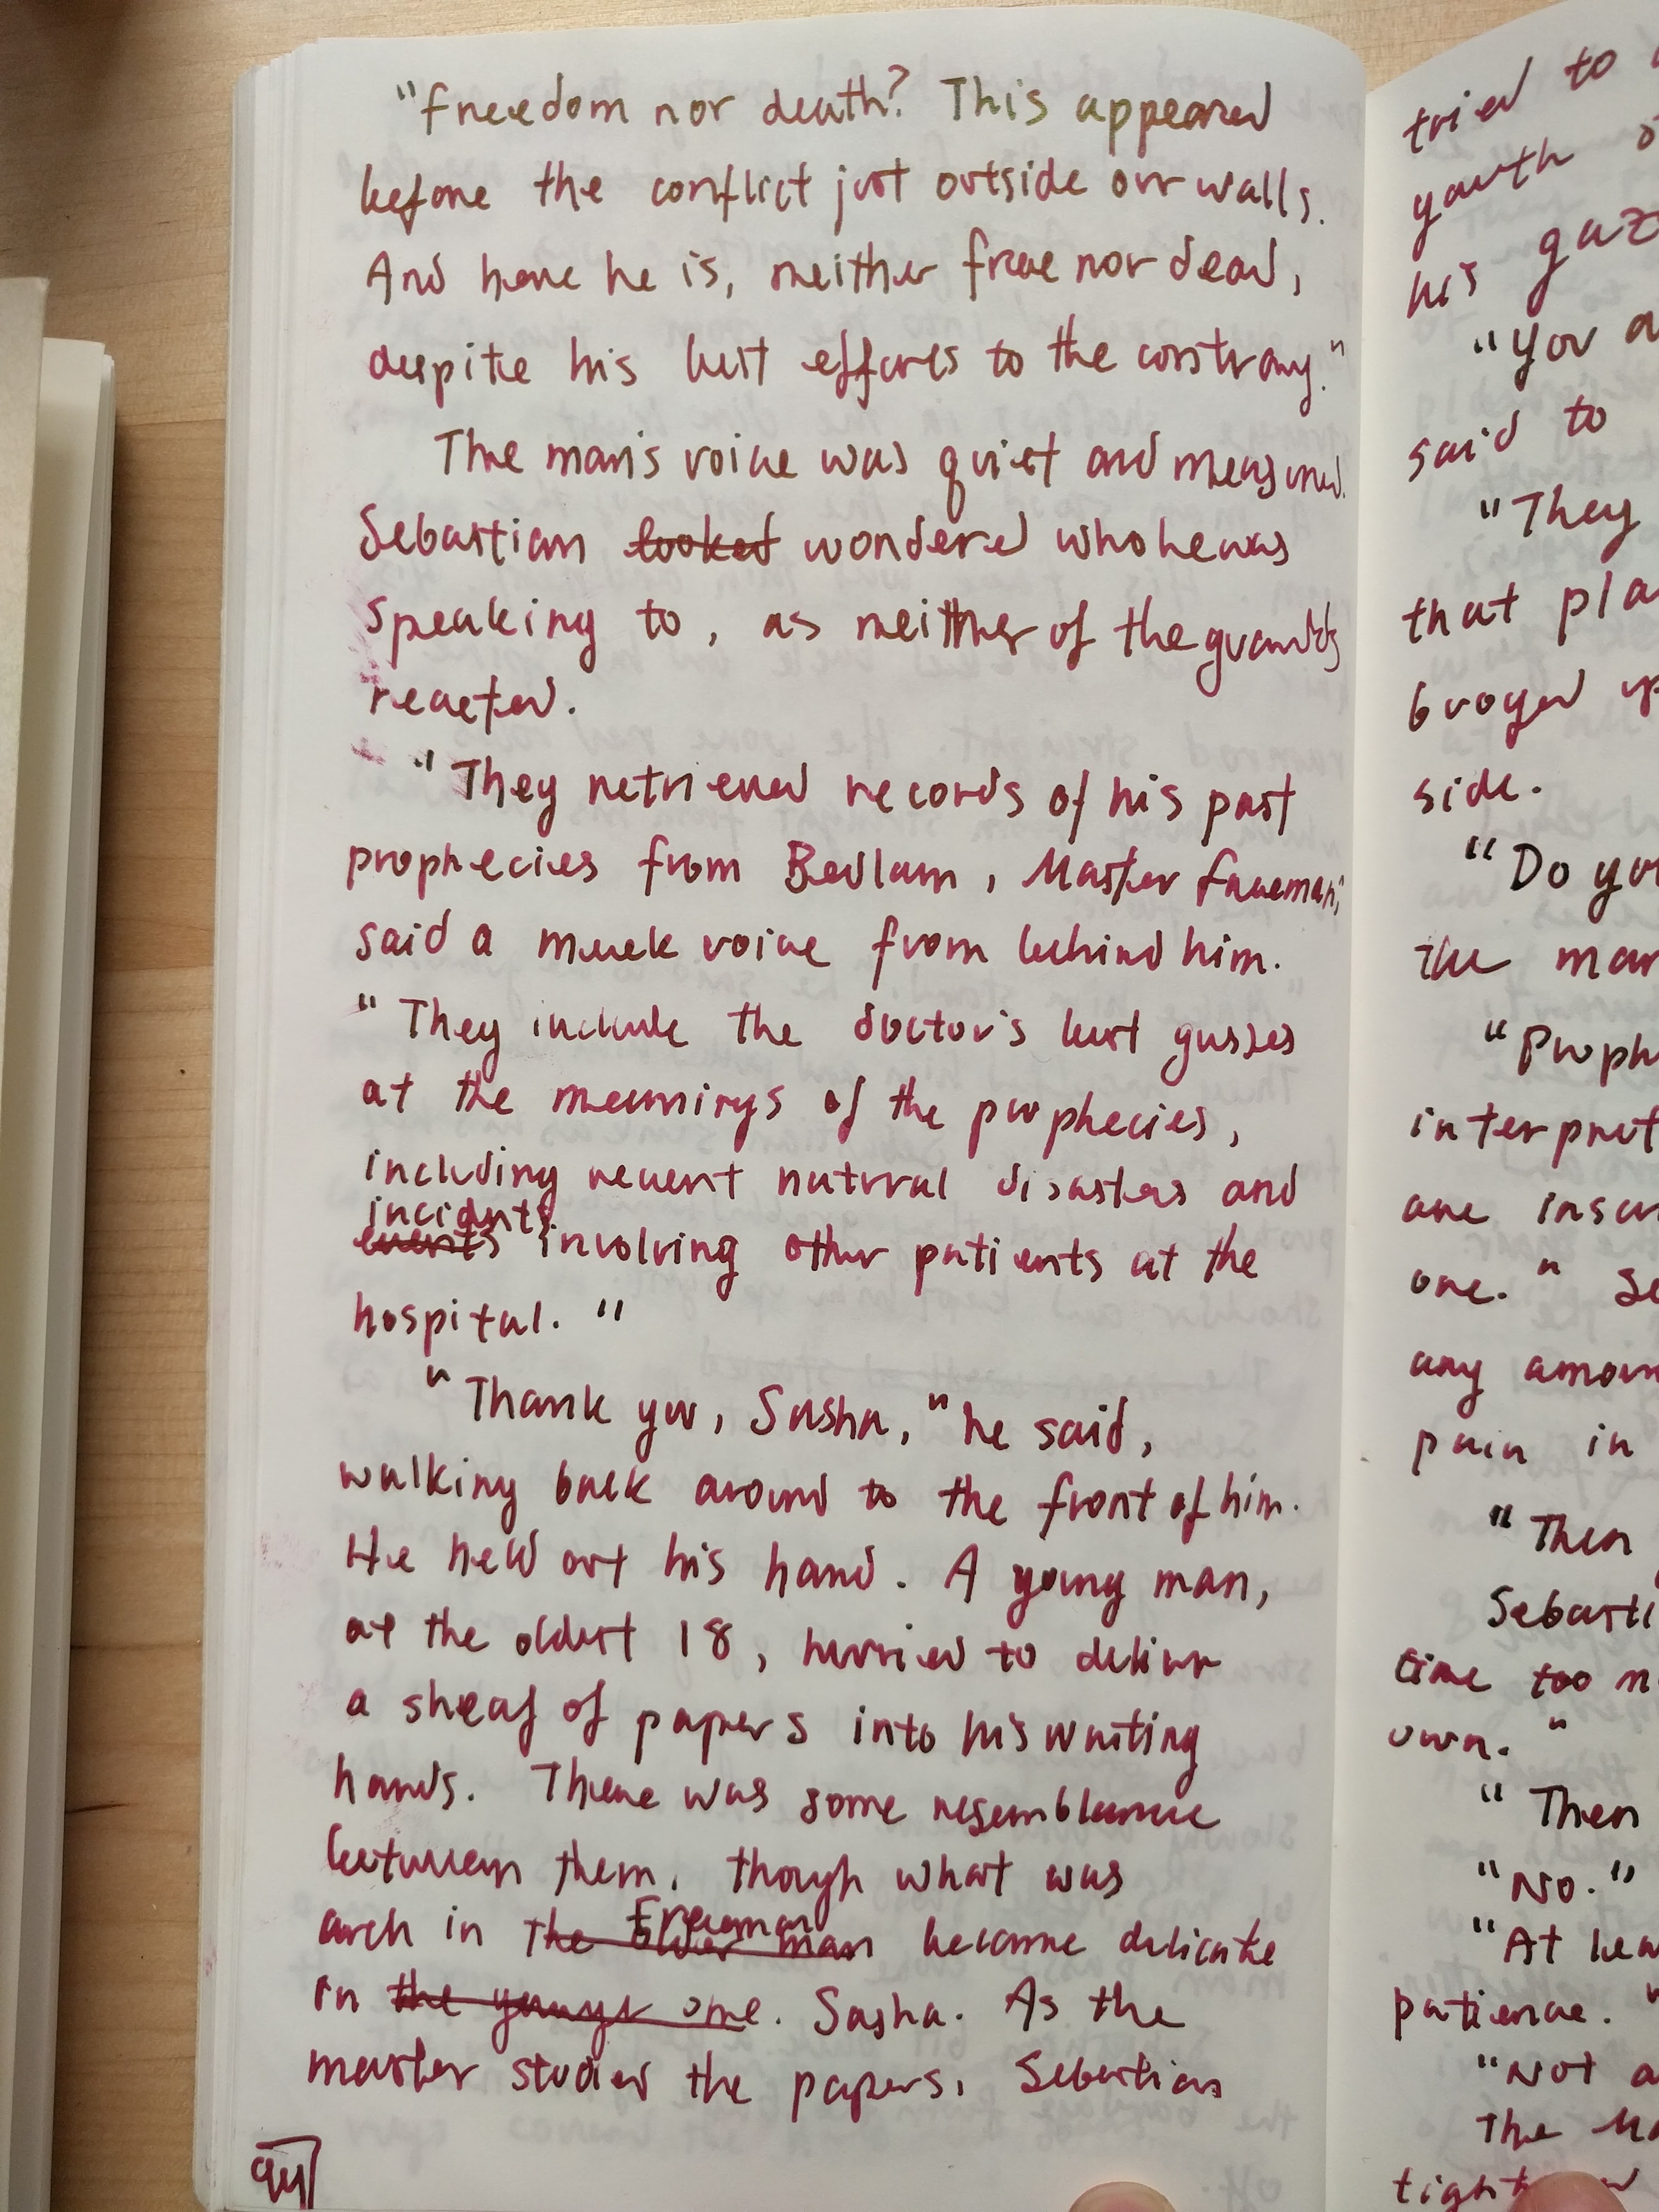 "Freedom nor death? This appeared
before the conflict just outside our walls.
And here he is, neither free nor dead,
despite his best efforts to the constrany."
The man's voice was quiet and measured.
Sebastian looked wondered who he was
speaking to, as neither of the guards
reacted.
"They retrieved records of his past
prophecies from Bedlam, Master Freeman,"
said a meek voice from behind him.
"They include the doctor's best gusses
at the meanings of the prophecies,
including recent natural disasters and
incidents
events involving other patients at the
hospital."
"Thank you, Sasha," he said,
walking back around to the front of him.
He held out his hand. A young man,
at the oldest 18, hurried to deliver
a sheaf of papers into his waiting
hands. There was some resemblance
between them, though what was
Freeman
arch in the older man became delicate
in the younger one. Sasha. As the
master studied the papers, Sebastian
94
tried to
youth
his gaz
"You a
said to
"They
that pla
buoyed up
side.
"Do you
the man
"Proph
interpret
are insa
one." Se
any amoun
pain in
"Then
Sebasti
time too m
own."
"Then
"No."
"At lea
patience."
"Not a
The Ma
tight